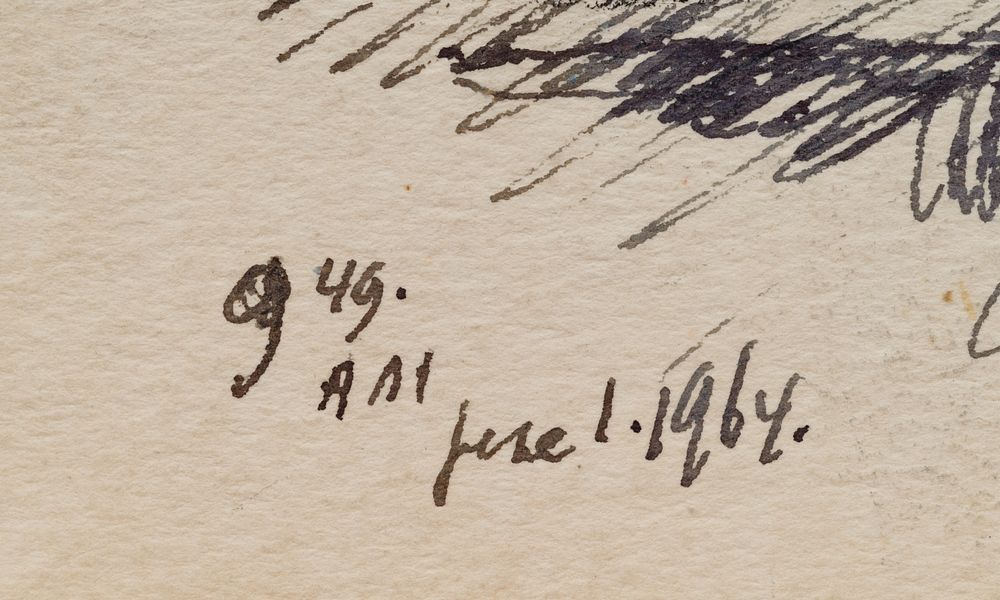 9 49.
AM
June 1. 1964.